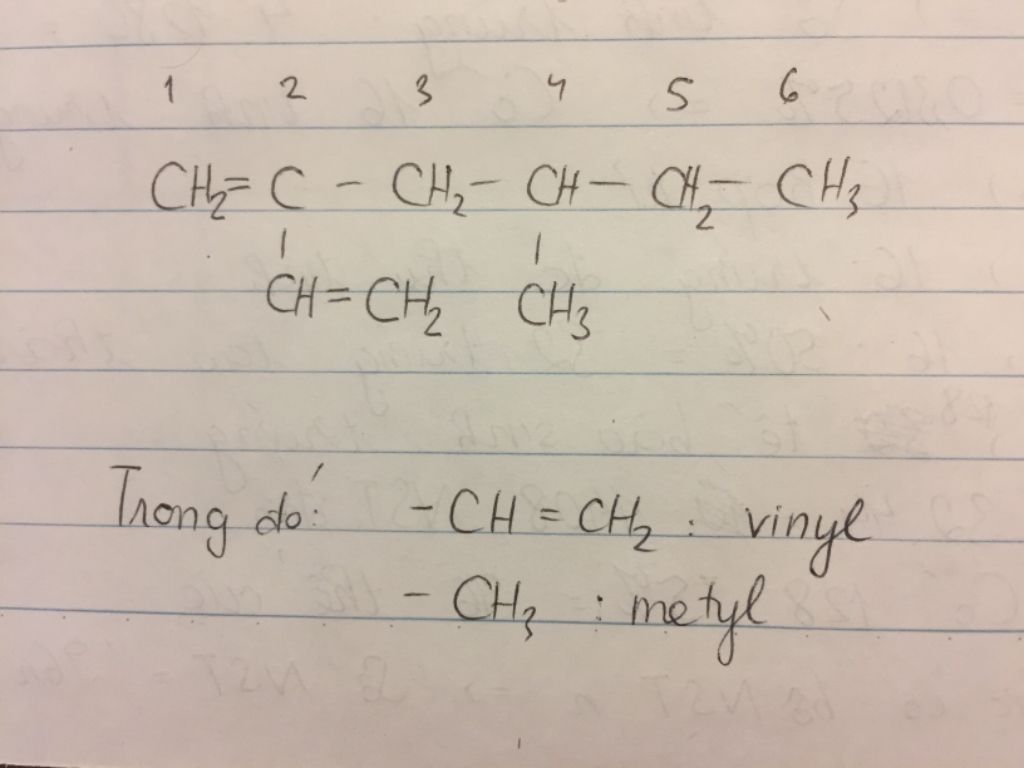 1 2 3 4 5 6
CH₂ = C - CH₂ - CH - CH₂ - CH₃
CH = CH₂ CH₃
Trong đó: - CH = CH₂ : vinyl
- CH₃ : metyl